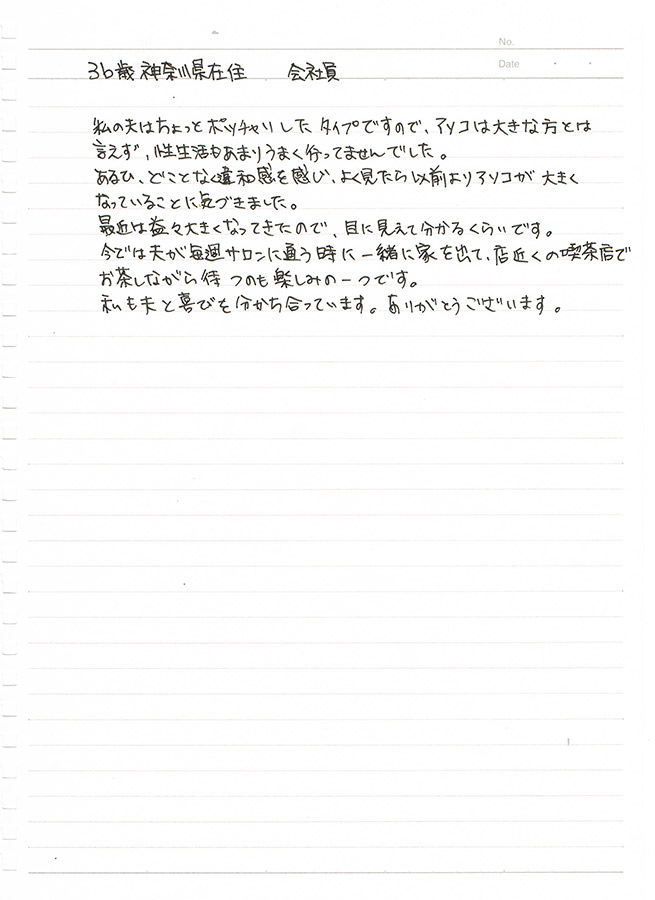 No.
Date
36歳 神奈川県在住 会社員
私の夫はちょっとポッチャリしたタイプですので、アソコは大きな方とは
言えず、性生活もあまりうまく行ってませんでした。
あるひ、どことなく違和感を感じ、よく見たら以前よりアソコが大きく
なっていることに気づきました。
最近は益々大きくなってきたので、目に見えて分かるくらいです。
今では夫が毎週サロンに通う時に一緒に家を出て、店近くの喫茶店で
お茶しながら待つのも楽しみの一つです。
私も夫と喜びを分かち合っています。ありがとうございます。